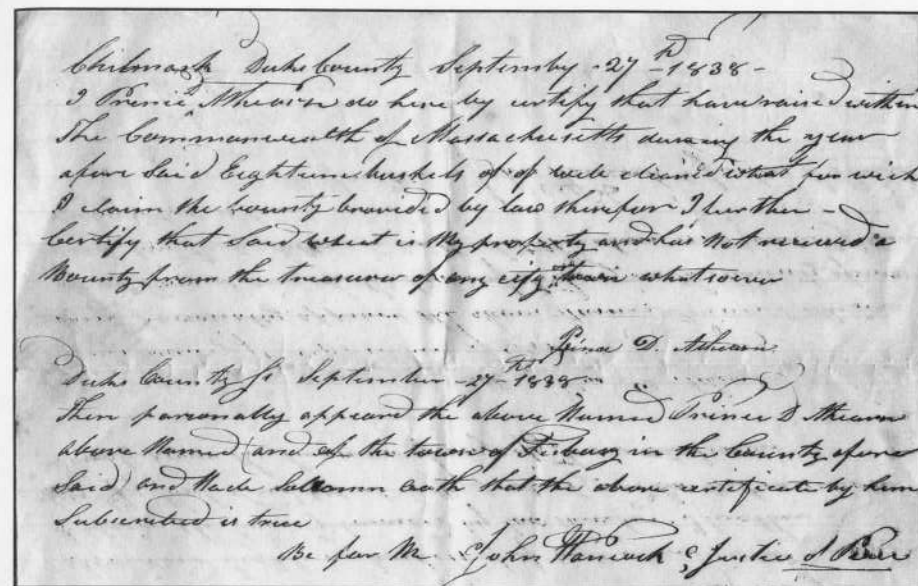 Chilmark Dukes County September -27th- 1838-
I Prince Athearn do here by certify that have raised within
The Commonwealth of Massachusetts during the year
afore Said Eighteen bushels of of well cleaned wheat for wich
I claim the bounty provided by law therefor I further -
Certify that Said wheat is My property and has Not received a
Bounty from the treasurer of any city town whatsoever
Prince D. Athearn
Dukes County Ss September -27th- 1838
Then parsonally appeard the above Named Prince D Athearn
above Named (and of the town of Tisbury in the County afore
Said) and Made Sollomn oath that the above certificate by him
Subscribed is true
Be for Me John Hancock Justice of Peace